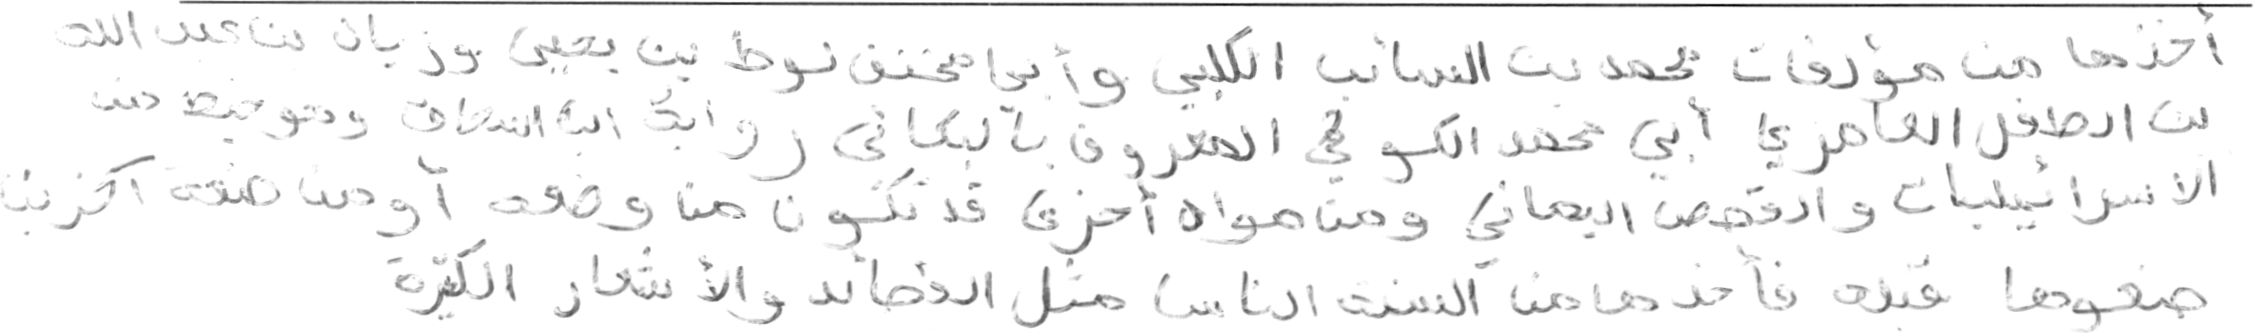 أخذها من مؤلفات محمد بن السائب الكلبي وأبي مخنف لوط بن يحيى وزياد بن عبد الله
بن الطفيل العامري أبي محمد الكوفي المعروف بالبكائي رواية ابن اسحاق وهو خبيط من
الاسرائيليات والقصص اليماني ومن مواد أخرى قد تكون من وضعه أو من صنعة آخرين
صنعوها قبله فأخذها من ألسنة الناس مثل القصائد والأشعار الكثيرة